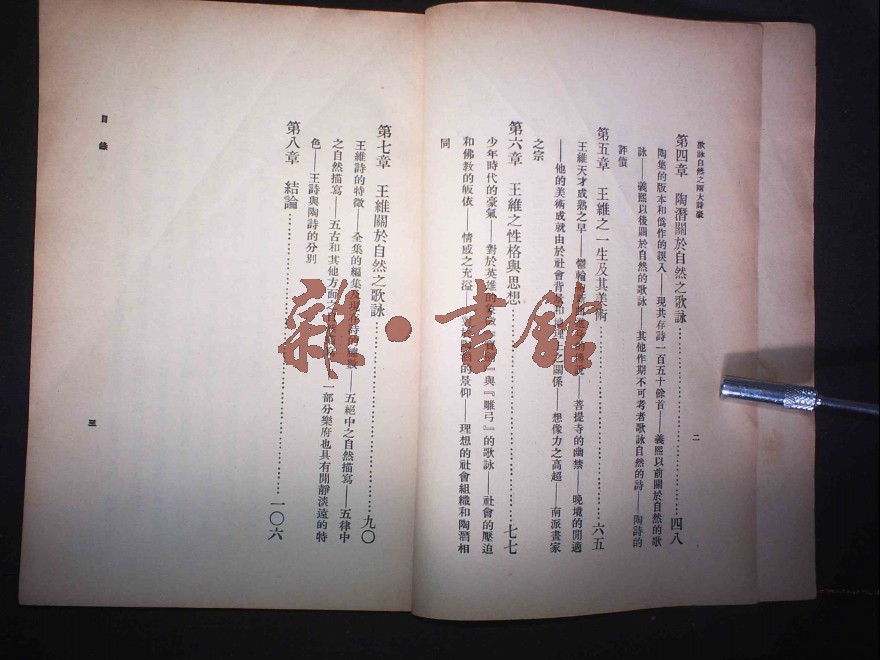 歌詠自然之兩大詩豪
二
第四章 陶潛關於自然之歌詠………四八
陶集的版本和僞作的誤入——現其存詩一百五十餘首——義熙以前關於自然的歌
詠——義熙以後關於自然的歌詠——其他作期不可考者歌詠自然的詩——陶詩的
評價
第五章 王維之一生及其美術………六五
王維天才成熟之早——鬱輪——菩提寺的幽禁——晚境的閒適
——他的美術成就由於社會背景和地理上之關係——想像力之高超——南派畫家
之宗
第六章 王維之性格與思想………七七
少年時代的豪氣——對於英雄的——與『雕弓』的歌詠——社會的壓迫
和佛教的皈依——情感之充溢——的景仰——理想的社會組織和陶潛相
同
第七章 王維關於自然之歌詠………九〇
王維詩的特徵——全集的編集及現存詩的總數——五絕中之自然描寫——五律中
之自然描寫——五古和其他方面之自然——一部分樂府也具有閒靜淡遠的特
色——王詩與陶詩的分別
第八章 結論………一〇六
目錄
三
雜·書館